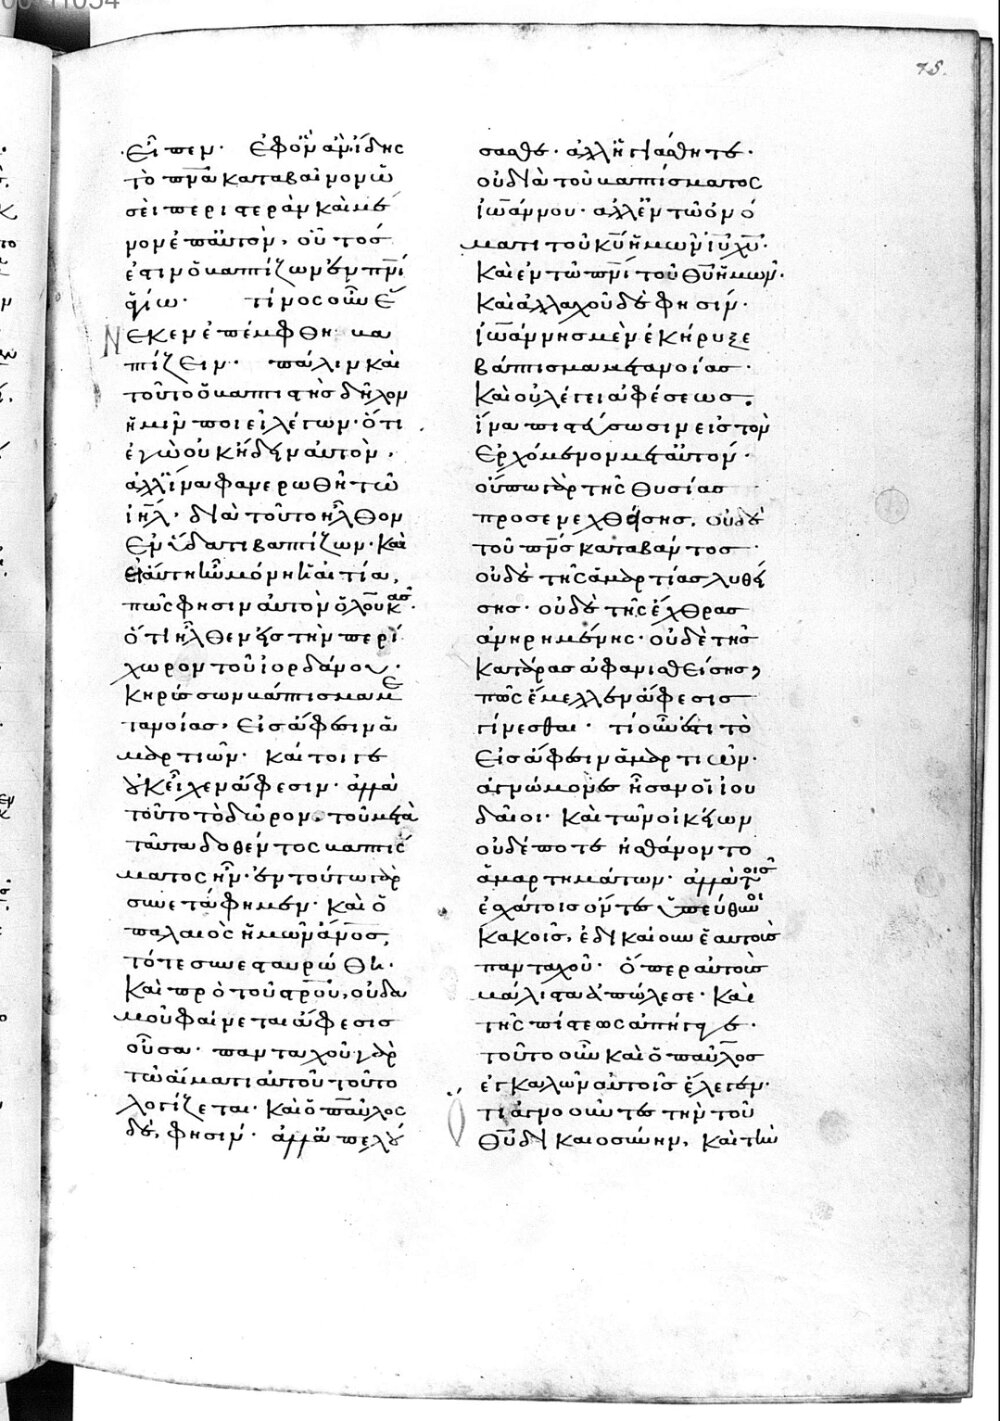 75.
εἶπεν· ἐφ' ὃν ἂν ἴδης
τὸ πνᾶ καταβαῖνον ὡ
σεὶ περιστερὰν καὶ μέ
νον ἐπ' αὐτὸν, οὗτος
ἐστιν ὁ βαπτίζων ἐν πνὶ
ἁγίω· τίνος οὖν ἕ
νεκεν ἐπέμφθη βα
πτίζειν· πάλιν καὶ
τοῦτο ὁ βαπτιστὴς δῆλον
ἡμῖν ποιεῖ λέγων· ὅτι
ἐγὼ οὐκ ἤδειν αὐτὸν,
ἀλλ' ἵνα φανερωθῆ τῶ
ἰηλ· διὰ τοῦτο ἦλθον
ἐν ὕδατι βαπτίζων· καὶ
εἰ αὕτη ἦν μόνη ἡ αἰτία,
πῶς φησιν αὐτὸν ὁ λουκᾶς·
ὅτι ἦλθεν εἰς τὴν περί
χωρον τοῦ ἰορδάνου·
κηρύσσων βάπτισμα με
τανοίας, εἰς ἄφεσιν ἁ
μαρτιῶν· καίτοιγε
οὐκ εἶχεν ἄφεσιν· ἀλλὰ
τοῦτο τὸ δῶρον, τοῦ μετὰ
ταῦτα δοθέντος βαπτίσ
ματος ἦν· ἐν τούτω γὰρ
συνετάφημεν· καὶ ὁ
παλαιὸς ἡμῶν ἄνος,
τότε συνεσταυρώθη·
καὶ πρὸ τοῦ στροῦ, οὐδα
μοῦ φαίνεται ἄφεσις
οὖσα· πανταχοῦ γὰρ
τῶ αἵματι αὐτοῦ τοῦτο
λογίζεται· καὶ ὁ παῦλος
δέ, φησίν· ἀλλ' ἀπελού
σασθε· ἀλλ' ἡγιάσθητε·
οὐ διὰ τοῦ βαπτίσματος
ἰωάννου· ἀλλ' ἐν τῶ ὀνό
ματι τοῦ κυ ἡμῶν ιυ χυ·
καὶ ἐν τῶ πνὶ τοῦ θυ ἡμῶν·
καὶ ἀλλαχοῦ δὲ φησίν·
ἰωάννης μὲν ἐκήρυξε
βάπτισμα μετανοίας·
καὶ οὐ λέγει ἀφέσεως·
ἵνα πιστεύσωσιν εἰς τὸν
ἐρχόμενον μετ' αὐτόν·
οὔπω γὰρ τῆς θυσίας
προσενεχθείσης, οὐδὲ
τοῦ πνς καταβάντος·
οὐδὲ τῆς ἁμαρτίας λυθεί
σης· οὐδὲ τῆς ἔχθρας
ἀνηρημένης· οὐδὲ τῆς
κατάρας ἀφανισθείσης,
πῶς ἔμελλεν ἄφεσις
γίνεσθαι· τί οὖν ἐστι τὸ
εἰς ἄφεσιν ἁμαρτιῶν·
ἀγνώμονες ἦσαν οἱ ἰου
δαῖοι· καὶ τῶν οἰκείων
οὐδέποτε ἠσθάνοντο
ἁμαρτημάτων· ἀλλὰ τοῖς
ἐσχάτοις ὄντες ὑπεύθυνοι
κακοῖς, ἐδικαίουν ἑαυτοὺς
πανταχοῦ· ὅπερ αὐτοὺς
μάλιστα ἀπώλεσε· καὶ
τῆς πίστεως ἀπήγαγε·
τοῦτο οὖν καὶ ὁ παῦλος
ἐγκαλῶν αὐτοῖς ἔλεγεν·
ὅτι ἀγνοοῦντες τὴν τοῦ
θυ δικαιοσύνην, καὶ τὴν